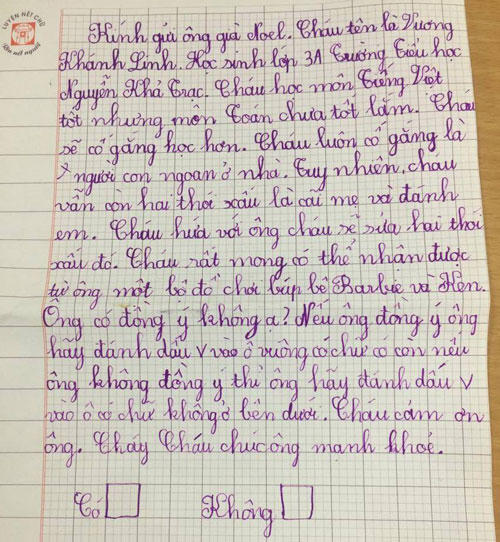 LUYỆN NÉT CHỮ
Rèn nết người
Kính gửi ông già Noel. Cháu tên là Vương
Khánh Linh. Học sinh lớp 3A Trường Tiểu học
Nguyễn Khả Trạc. Cháu học môn Tiếng Việt
tốt nhưng môn Toán chưa tốt lắm. Cháu
sẽ cố gắng học hơn. Cháu luôn cố gắng là
người con ngoan ở nhà. Tuy nhiên, cháu
vẫn còn hai thói xấu là cãi mẹ và đánh
em. Cháu hứa với ông cháu sẽ sửa hai thói
xấu đó. Cháu rất mong có thể nhận được
từ ông một bộ đồ chơi búp bê Barbie và Ken.
Ông có đồng ý không ạ? Nếu ông đồng ý ông
hãy đánh dấu v vào ô vuông có chữ có còn nếu
ông không đồng ý thì ông hãy đánh dấu v
vào ô có chữ không ở bên dưới. Cháu cảm ơn
ông. Cháy Cháu chúc ông mạnh khoẻ.
Có Không